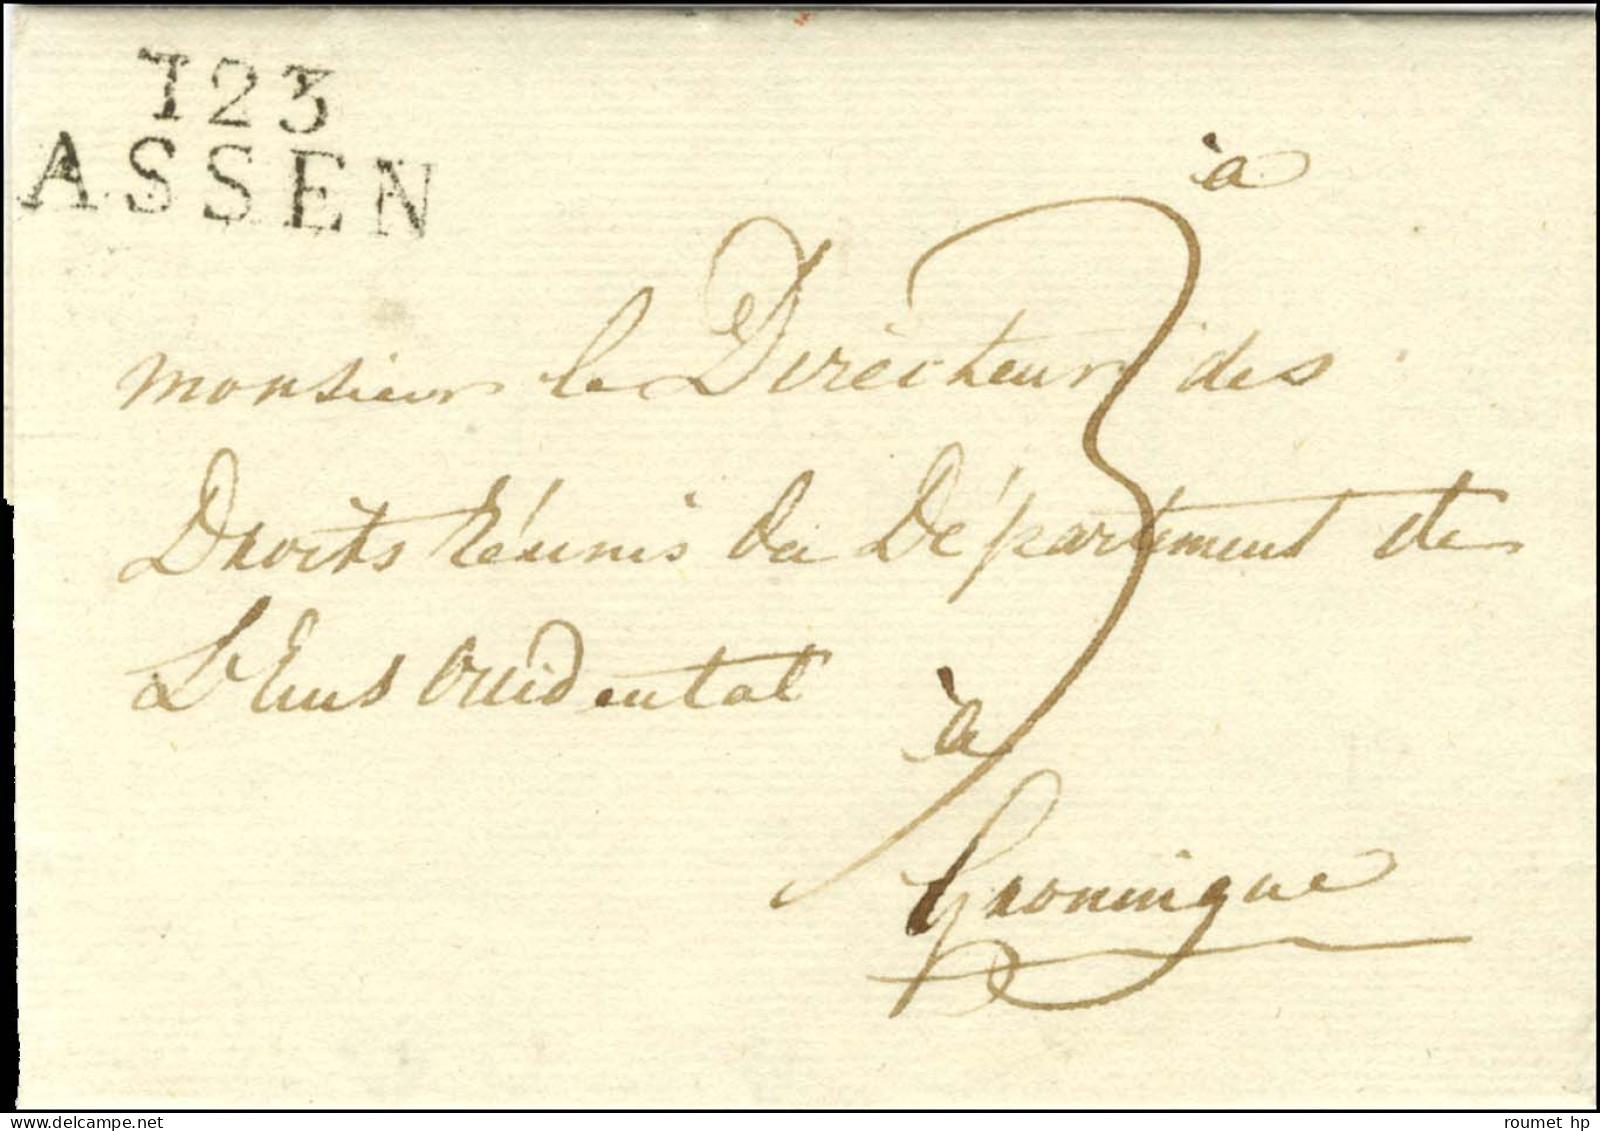 123
ASSEN
à
3
monsieur le Directeur des
Droits Réunis du Département de
L'Ems Occidental
à
Groningue
roumet hp
delcampe.net